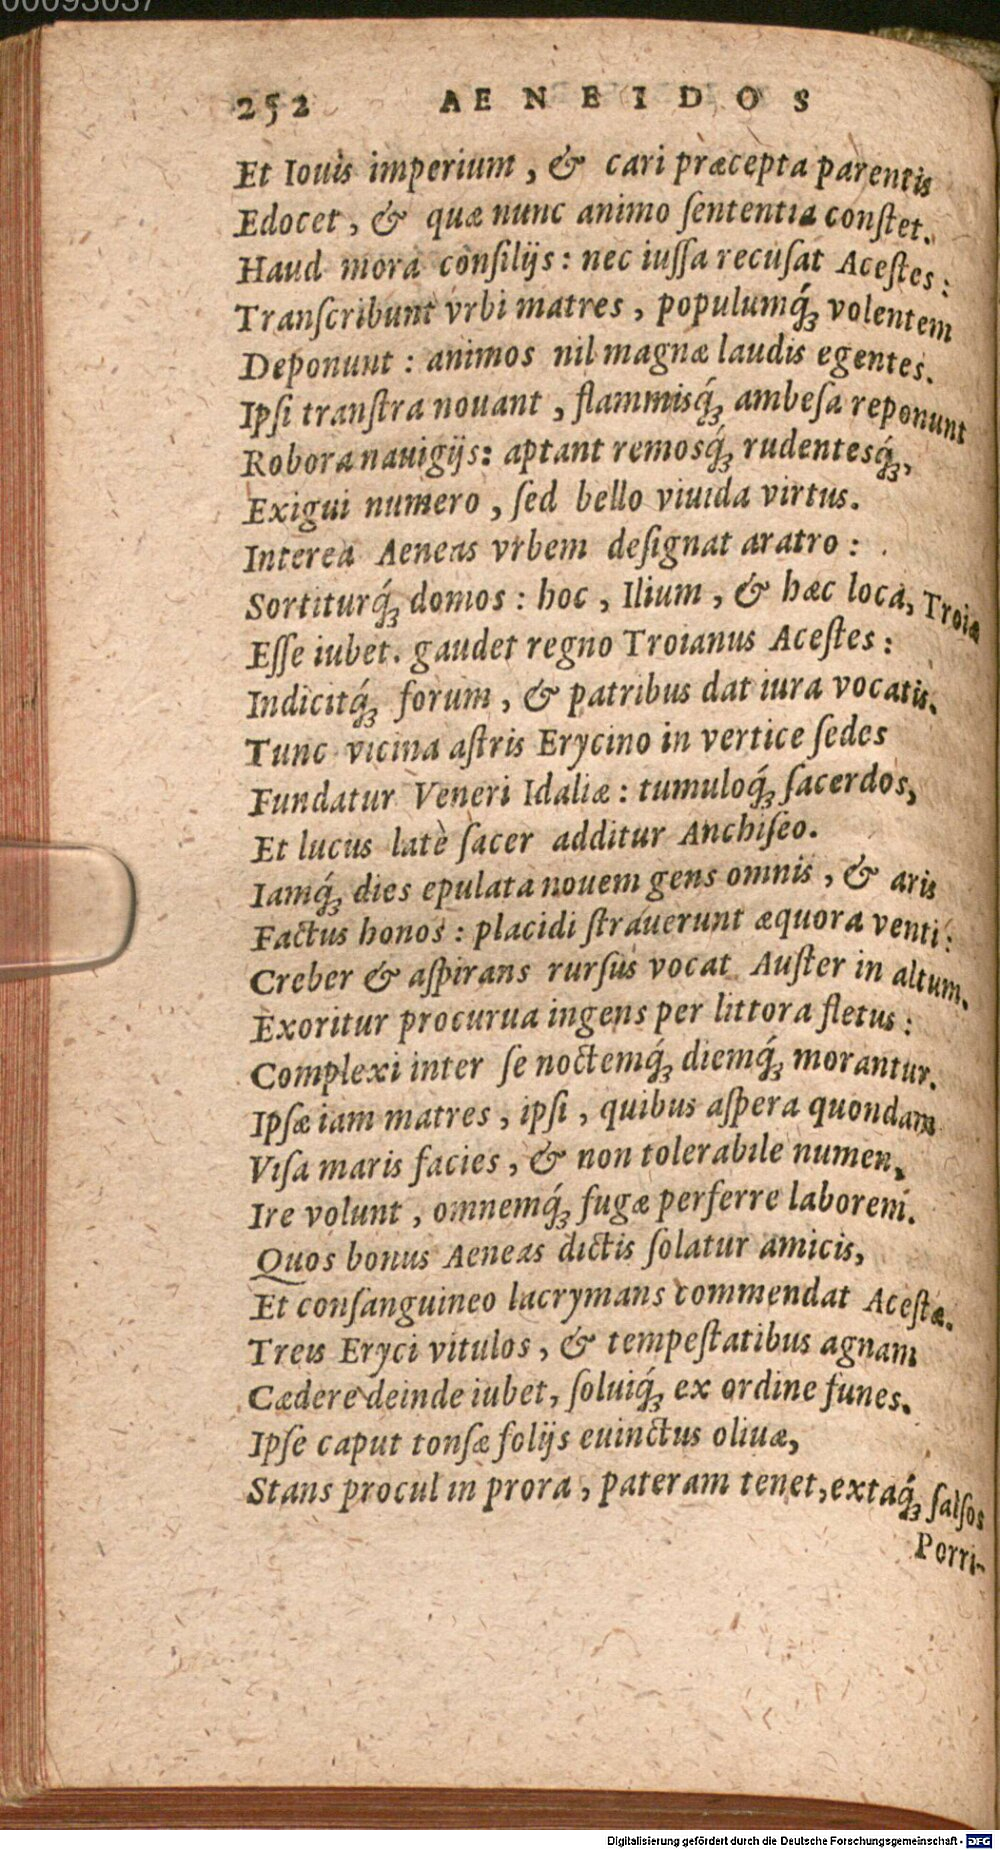 00093037
252 AENEIDOS
Et Iouis imperium, & cari præcepta parentis
Edocet, & quæ nunc animo ſententia conſtet.
Haud mora conſilijs: nec iuſſa recuſat Aceſtes:
Tranſcribunt vrbi matres, populumq́ꝫ volentem
Deponunt: animos nil magnæ laudis egentes.
Ipſi tranſtra nouant, flammisq́ꝫ ambeſa reponunt
Robora nauigijs: aptant remosq́ꝫ rudentesq́ꝫ,
Exigui numero, ſed bello viuida virtus.
Interea Aeneas vrbem deſignat aratro:
Sortiturq́ꝫ domos: hoc, Ilium, & hæc loca, Troiæ
Eſſe iubet. gaudet regno Troianus Aceſtes:
Indicitq́ꝫ forum, & patribus dat iura vocatis.
Tunc vicina aſtris Erycino in vertice ſedes
Fundatur Veneri Idaliæ: tumuloq́ꝫ ſacerdos,
Et lucus latè ſacer additur Anchiſeo.
Iamq́ꝫ dies epulata nouem gens omnis, & aris
Factus honos: placidi ſtrauerunt æquora venti:
Creber & aſpirans rurſus vocat Auſter in altum.
Exoritur procurua ingens per littora fletus:
Complexi inter ſe noctemq́ꝫ diemq́ꝫ morantur.
Ipſæ iam matres, ipſi, quibus aſpera quondam
Viſa maris facies, & non tolerabile numen,
Ire volunt, omnemq́ꝫ fugæ perferre laborem.
Quos bonus Aeneas dictis ſolatur amicis,
Et conſanguineo lacrymans commendat Aceſtæ.
Treis Eryci vitulos, & tempeſtatibus agnam
Cædere deinde iubet, ſoluiq́ꝫ ex ordine funes.
Ipſe caput tonſæ folijs euinctus oliuæ,
Stans procul in prora, pateram tenet, extaq́ꝫ ſalſos
Porri-
Digitalisierung gefördert durch die Deutsche Forschungsgemeinschaft - DFG